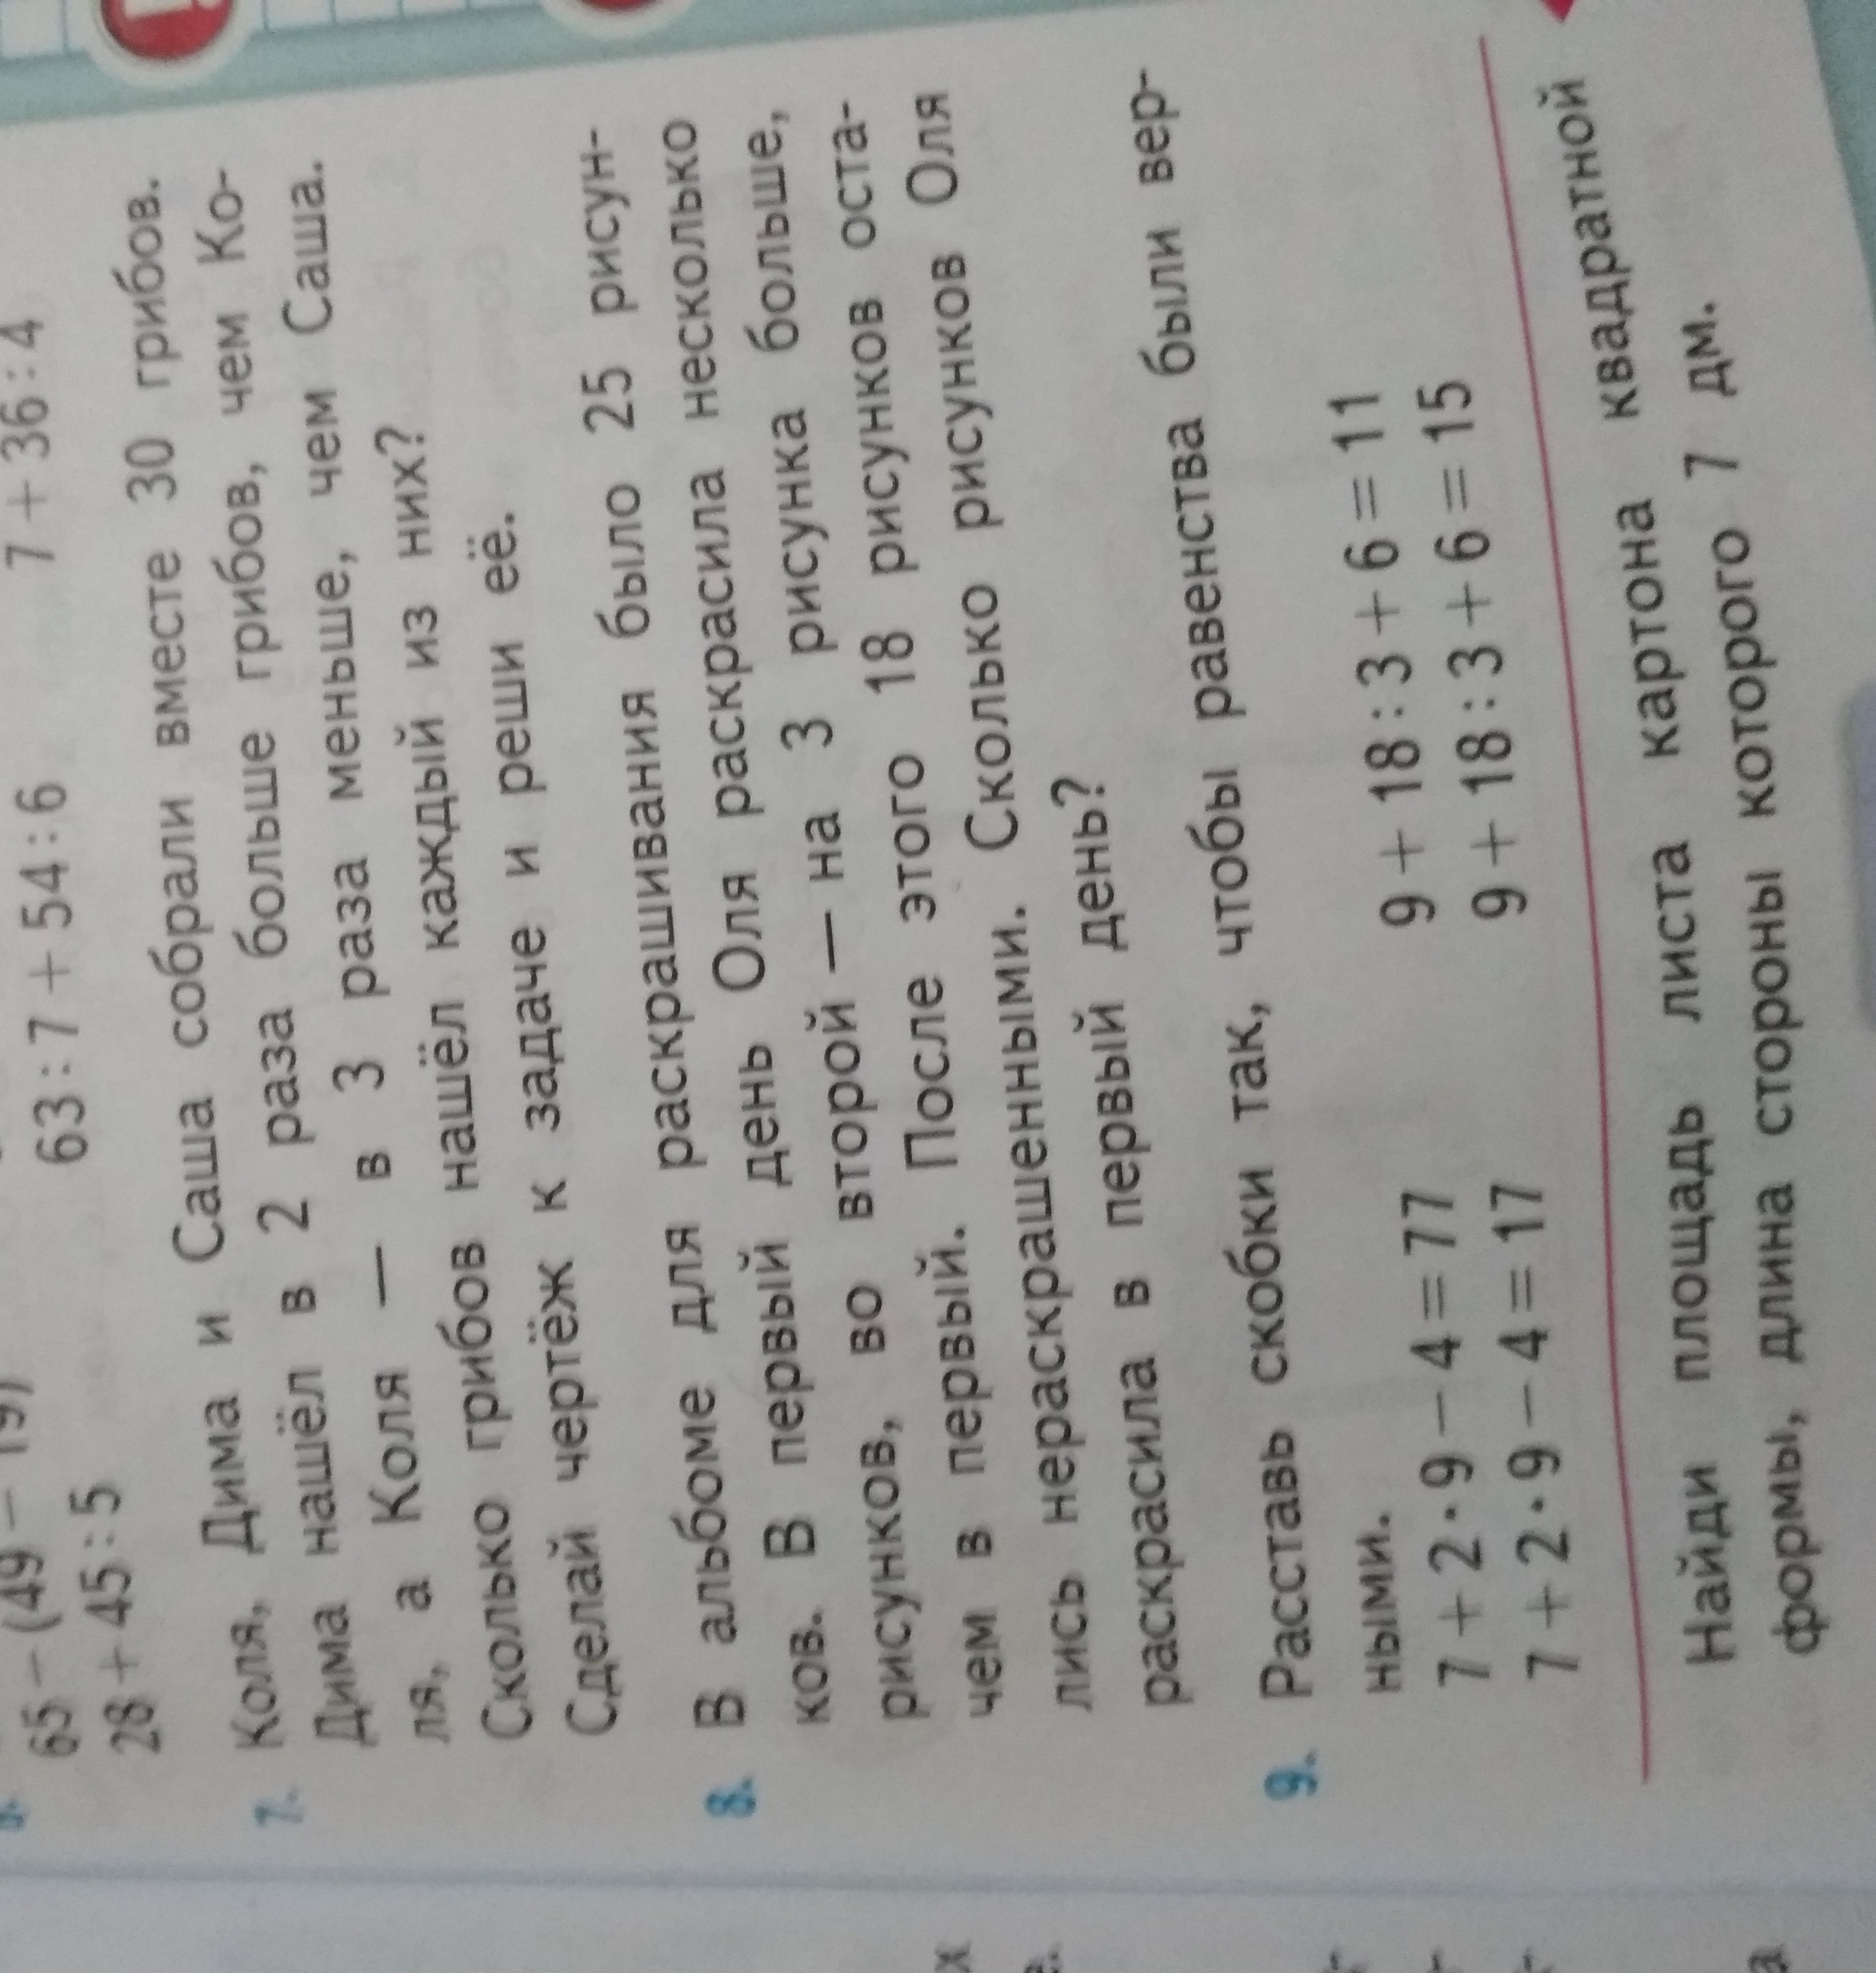 65 − (49 − 19)
28 + 45 : 5
63 : 7 + 54 : 6
7 + 36 : 4
7. Коля, Дима и Саша собрали вместе 30 грибов.
Дима нашёл в 2 раза больше грибов, чем Ко-
ля, а Коля — в 3 раза меньше, чем Саша.
Сколько грибов нашёл каждый из них?
Сделай чертёж к задаче и реши её.
8. В альбоме для раскрашивания было 25 рисун-
ков. В первый день Оля раскрасила несколько
рисунков, во второй — на 3 рисунка больше,
чем в первый. После этого 18 рисунков оста-
лись нераскрашенными. Сколько рисунков Оля
раскрасила в первый день?
9. Расставь скобки так, чтобы равенства были вер-
ными.
7 + 2 · 9 − 4 = 77
9 + 18 : 3 + 6 = 11
7 + 2 · 9 − 4 = 17
9 + 18 : 3 + 6 = 15
Найди площадь листа картона квадратной
формы, длина стороны которого 7 дм.